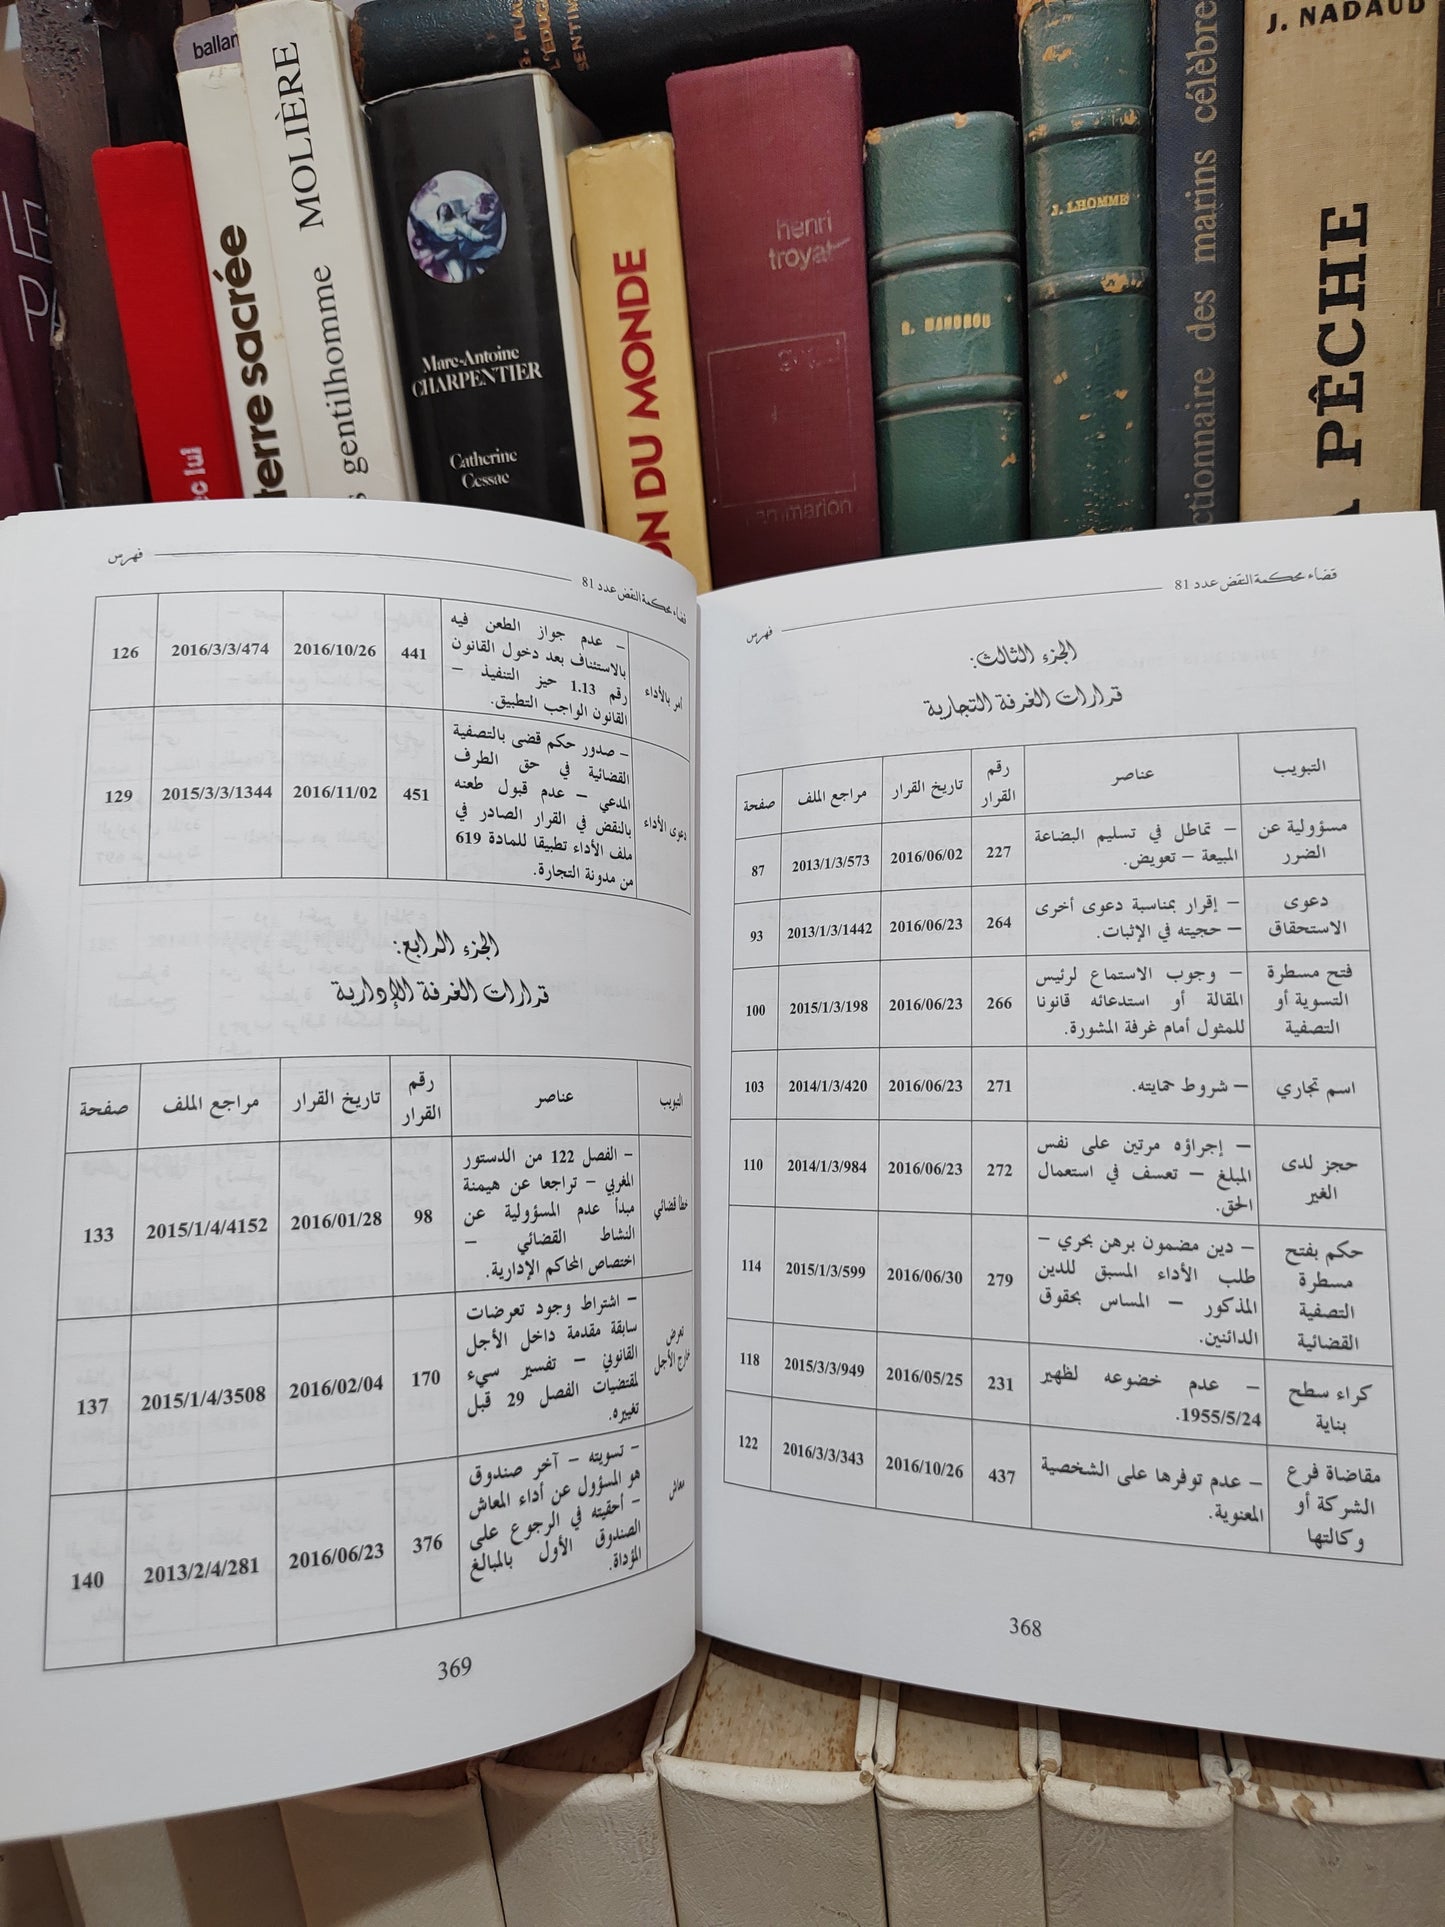 ballan
LE
PA
ec lui
terre sacrée
MOLIÈRE
gentilhomme
G. FLAU
L'ÉDUCA
SENTIM
Marc-Antoine
CHARPENTIER
Catherine
Cessac
ON DU MONDE
henri
troyat
flammarion
R. MANDROU
J. LHOMME
ctionnaire des marins célèbre
J. NADAUD
PÊCHE
قضاء محكمة النقض عدد 81
فهرس
الجزء الثالث:
قرارات الغرفة التجارية
التبويب عناصر رقم القرار تاريخ القرار مراجع الملف صفحة
مسؤولية عن الضرر – تماطل في تسليم البضاعة المبيعة – تعويض. 227 2016/06/02 2013/1/3/573 87
دعوى الاستحقاق – إقرار بمناسبة دعوى أخرى – حجيته في الإثبات. 264 2016/06/23 2013/1/3/1442 93
فتح مسطرة التسوية أو التصفية – وجوب الاستماع لرئيس المقالة أو استدعائه قانونا للمثول أمام غرفة المشورة. 266 2016/06/23 2015/1/3/198 100
اسم تجاري – شروط حمايته. 271 2016/06/23 2014/1/3/420 103
حجز لدى الغير – إجراؤه مرتين على نفس المبلغ – تعسف في استعمال الحق. 272 2016/06/23 2014/1/3/984 110
حكم بفتح مسطرة التصفية القضائية – دين مضمون برهن بحري – طلب الأداء المسبق للدين المذكور – المساس بحقوق الدائنين. 279 2016/06/30 2015/1/3/599 114
كراء سطح بناية – عدم خضوعه لظهير 1955/5/24. 231 2016/05/25 2015/3/3/949 118
مقاضاة فرع الشركة أو وكالتها – عدم توفرها على الشخصية المعنوية. 437 2016/10/26 2016/3/3/343 122
368
قضاء محكمة النقض عدد 81
فهرس
أمر بالأداء – عدم جواز الطعن فيه بالاستئناف بعد دخول القانون رقم 1.13 حيز التنفيذ – القانون الواجب التطبيق. 441 2016/10/26 2016/3/3/474 126
دعوى الأداء – صدور حكم قضى بالتصفية القضائية في حق الطرف المدعي – عدم قبول طعنه بالنقض في القرار الصادر في ملف الأداء تطبيقا للمادة 619 من مدونة التجارة. 451 2016/11/02 2015/3/3/1344 129
الجزء الرابع:
قرارات الغرفة الإدارية
التبويب عناصر رقم القرار تاريخ القرار مراجع الملف صفحة
خطأ قضائي – الفصل 122 من الدستور المغربي – تراجعا عن هيمنة مبدأ عدم المسؤولية عن النشاط القضائي – اختصاص المحاكم الإدارية. 98 2016/01/28 2015/1/4/4152 133
تعرض خارج الأجل – اشتراط وجود تعرضات سابقة مقدمة داخل الأجل القانوني – تفسير سيء لمقتضيات الفصل 29 قبل تغييره. 170 2016/02/04 2015/1/4/3508 137
معاش – تسويته – آخر صندوق هو المسؤول عن أداء المعاش – أحقيته في الرجوع على الصندوق الأول بالمبالغ المؤداة. 376 2016/06/23 2013/2/4/281 140
369